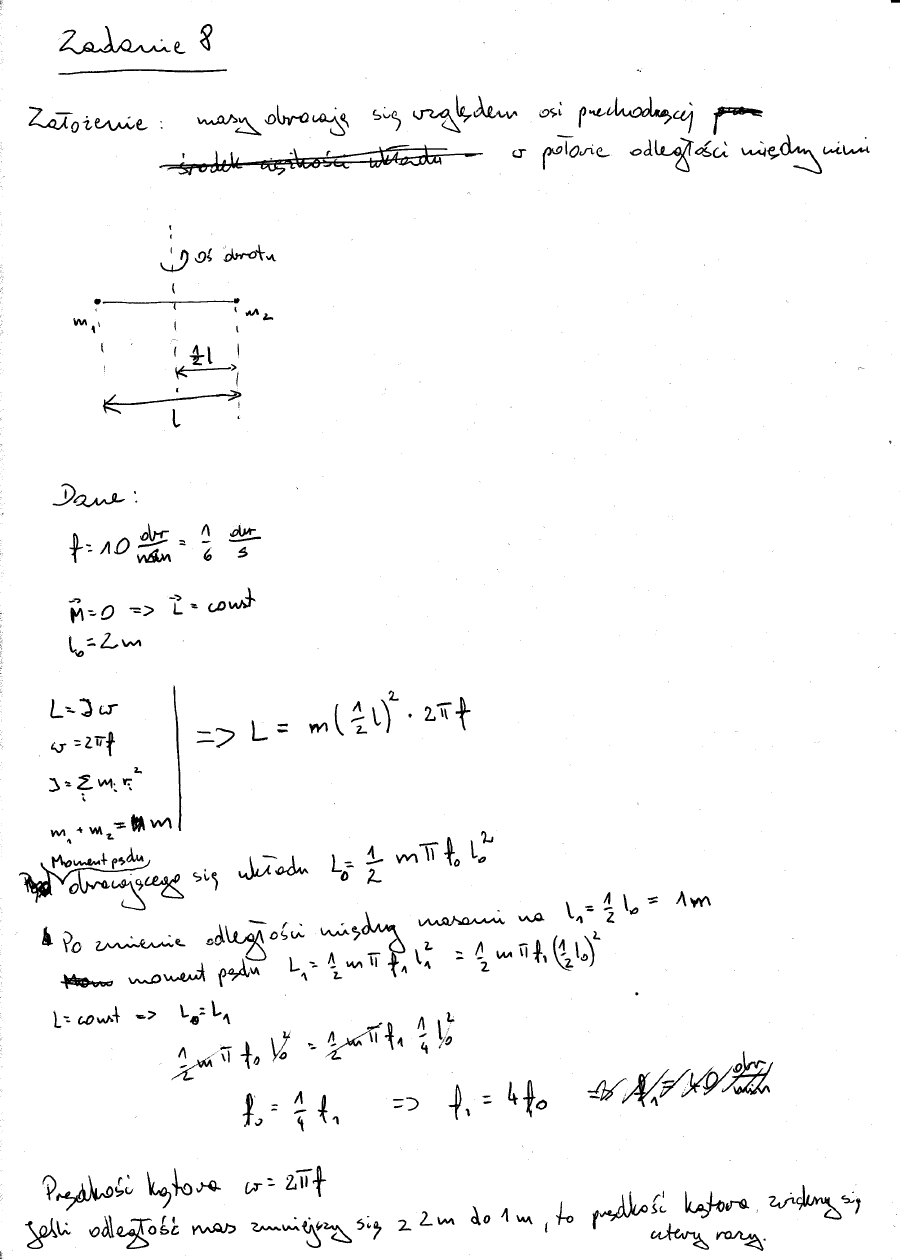 Zadanie 8
Założenie: masy obracają się względem osi przechodzącej
środek ciężkości układu w połowie odległości między nimi
oś obrotu
m₁ m₂
½l
l
Dane:
f = 10 obr/min = 1/6 obr/s
M⃗ = 0 => L⃗ = const
l₀ = 2m
L = Jω
ω = 2πf
=> L = m(½l)² · 2πf
J = Σᵢ mᵢ rᵢ²
m₁ + m₂ = m
Moment pędu
obracającego się układu L₀ = ½ mπf₀l₀²
Po zmienie odległości między masami na l₁ = ½l₀ = 1m
moment pędu L₁ = ½ mπf₁l₁² = ½ mπf₁(½l₀)²
L = const => L₀ = L₁
½ mπf₀l₀² = ½ mπf₁ ¼l₀²
f₀ = ¼f₁ => f₁ = 4f₀ => f₁ = 40 obr/min
Prędkość kątowa ω = 2πf
Jeśli odległość mas zmniejszy się z 2m do 1m, to prędkość kątowa zwiększy się
cztery razy.